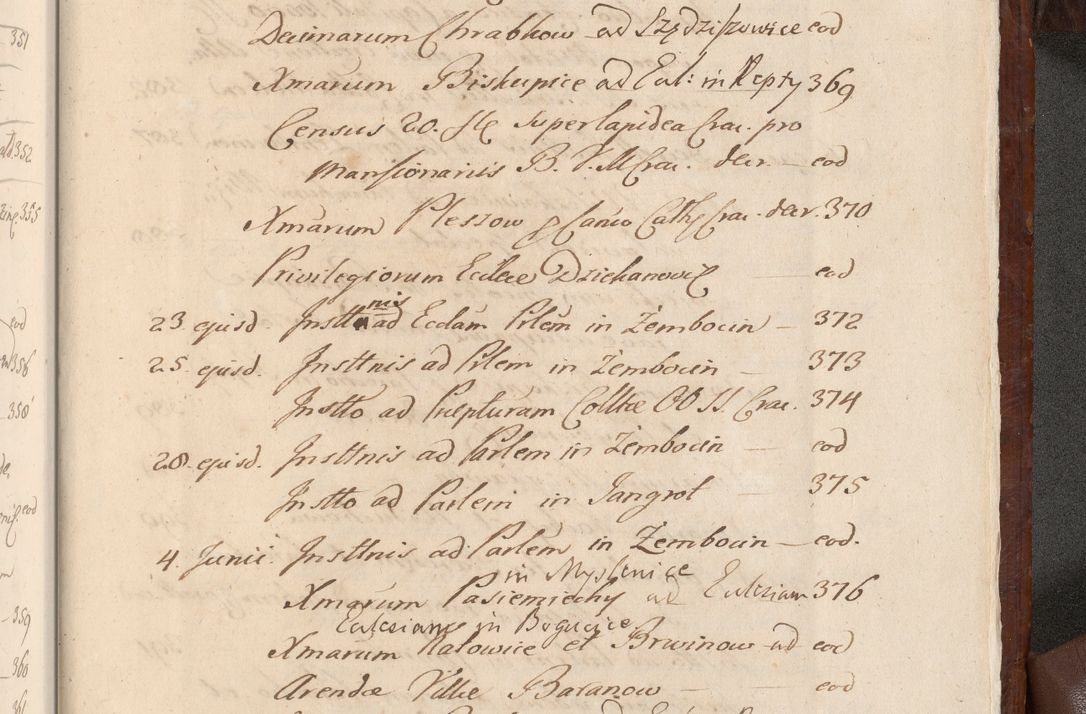 351
352
355
eod
356
358
eod
359
360
361
Decimarum Chrabkow ad Szędziszowice eod
Xmarum Biskupice ad Eccl: in Kepty 369
Census 20. superlapidea Crac. pro
Mansionariis B. V. M Crac. decr — eod
Xmarum Plessow Canco Cath Crac. decr. 370
Privilegiorum Ecclae Dziekanowic eod
23 ejusd Insttnis ad Ecclam Prlem in Zembocin — 372
25 ejusd. Insttnis ad Prlem in Zembocin — 373
Instto ad Prepturam Colltae OO SS. Crac. 374
28. ejusd. Insttnis ad Parlem in Zembocin — eod
Instto ad Parlem in Jangrot — 375
4. Junii. Insttnis ad Parlem in Zembocin — eod.
in Myslenice
Xmarum Pasiemiechy ad Ecclesiam 376
Ecclesiam in Bogucice
Xmarum Katowice et Brwinow ad eod
Arendae Villae Baranow — eod